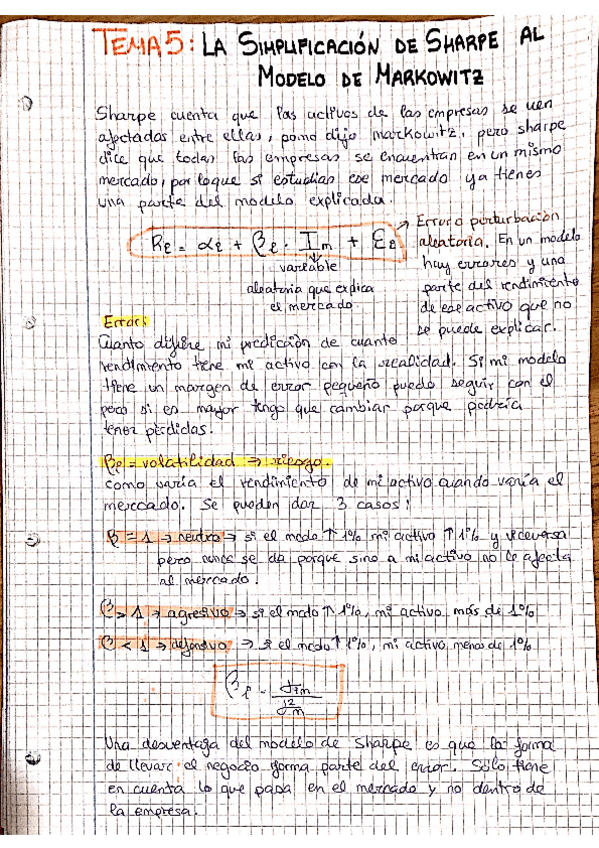 TEMA 5: LA SIMPLIFICACIÓN DE SHARPE AL
MODELO DE MARKOWITZ
Sharpe cuenta que los activos de las empresas se ven
afectadas entre ellas, como dijo markowitz, pero sharpe
dice que todas las empresas se encuentran en un mismo
mercado, por lo que si estudias ese mercado ya tienes
una parte del modelo explicada.
Rₑ = αₑ + βₑ · Iₘ + Ɛₑ
variable
aleatoria que explica
el mercado
→ Error o perturbación
aleatoria. En un modelo
hay errores y una
parte del rendimiento
de ese activo que no
se puede explicar.
Error:
Cuanto difiere mi predicción de cuanto
rendimiento tiene mi activo con la realidad. Si mi modelo
tiene un margen de error pequeño puedo seguir con el
pero si es mayor tengo que cambiar porque podría
tener pérdidas.
βₑ = volatilidad → riesgo.
como varía el rendimiento de mi activo cuando varía el
mercado. Se pueden dar 3 casos:
β = 1 → neutro → si el mcdo ↑ 1% mi activo ↑ 1% y viceversa
pero nunca se da porque sino a mi activo no le afecta
al mercado.
β > 1 → agresivo → si el mcdo ↑ 1%, mi activo más de 1%
β < 1 → defensivo → si el mcdo ↑ 1%, mi activo menos de 1%
Una desventaja del modelo de sharpe es que la forma
de llevar el negocio forma parte del error. Sólo tiene
en cuenta lo que pasa en el mercado y no dentro de
la empresa.